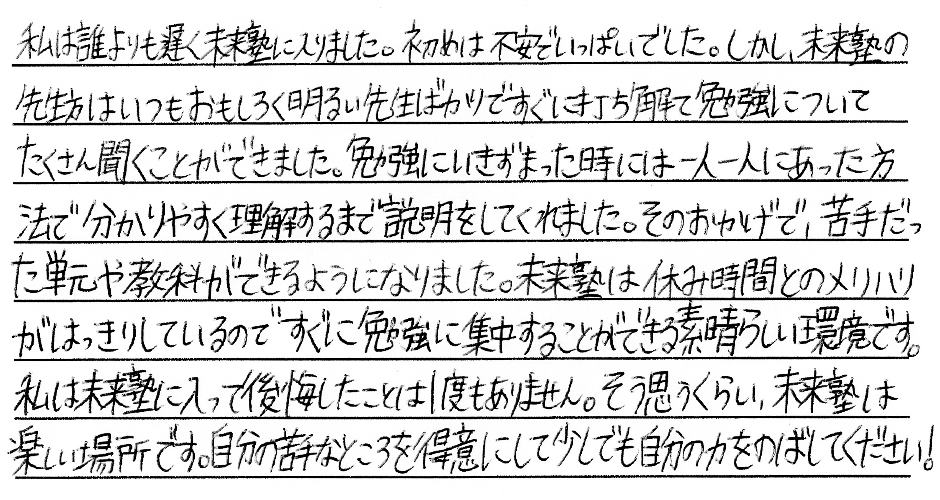 私は誰よりも遅く未来塾に入りました。初めは不安でいっぱいでした。しかし、未来塾の
先生方はいつもおもしろく明るい先生ばかりですぐに打ち解て勉強について
たくさん聞くことができました。勉強にいきずまった時には一人一人にあった方
法で分かりやすく理解するまで説明をしてくれました。そのおかげで、苦手だっ
た単元や教科ができるようになりました。未来塾は休み時間とのメリハリ
がはっきりしているのですぐに勉強に集中することができる素晴らしい環境です。
私は未来塾に入って後悔したことは1度もありません。そう思うくらい、未来塾は
楽しい場所です。自分の苦手なところを得意にして少しでも自分の力をのばしてください!